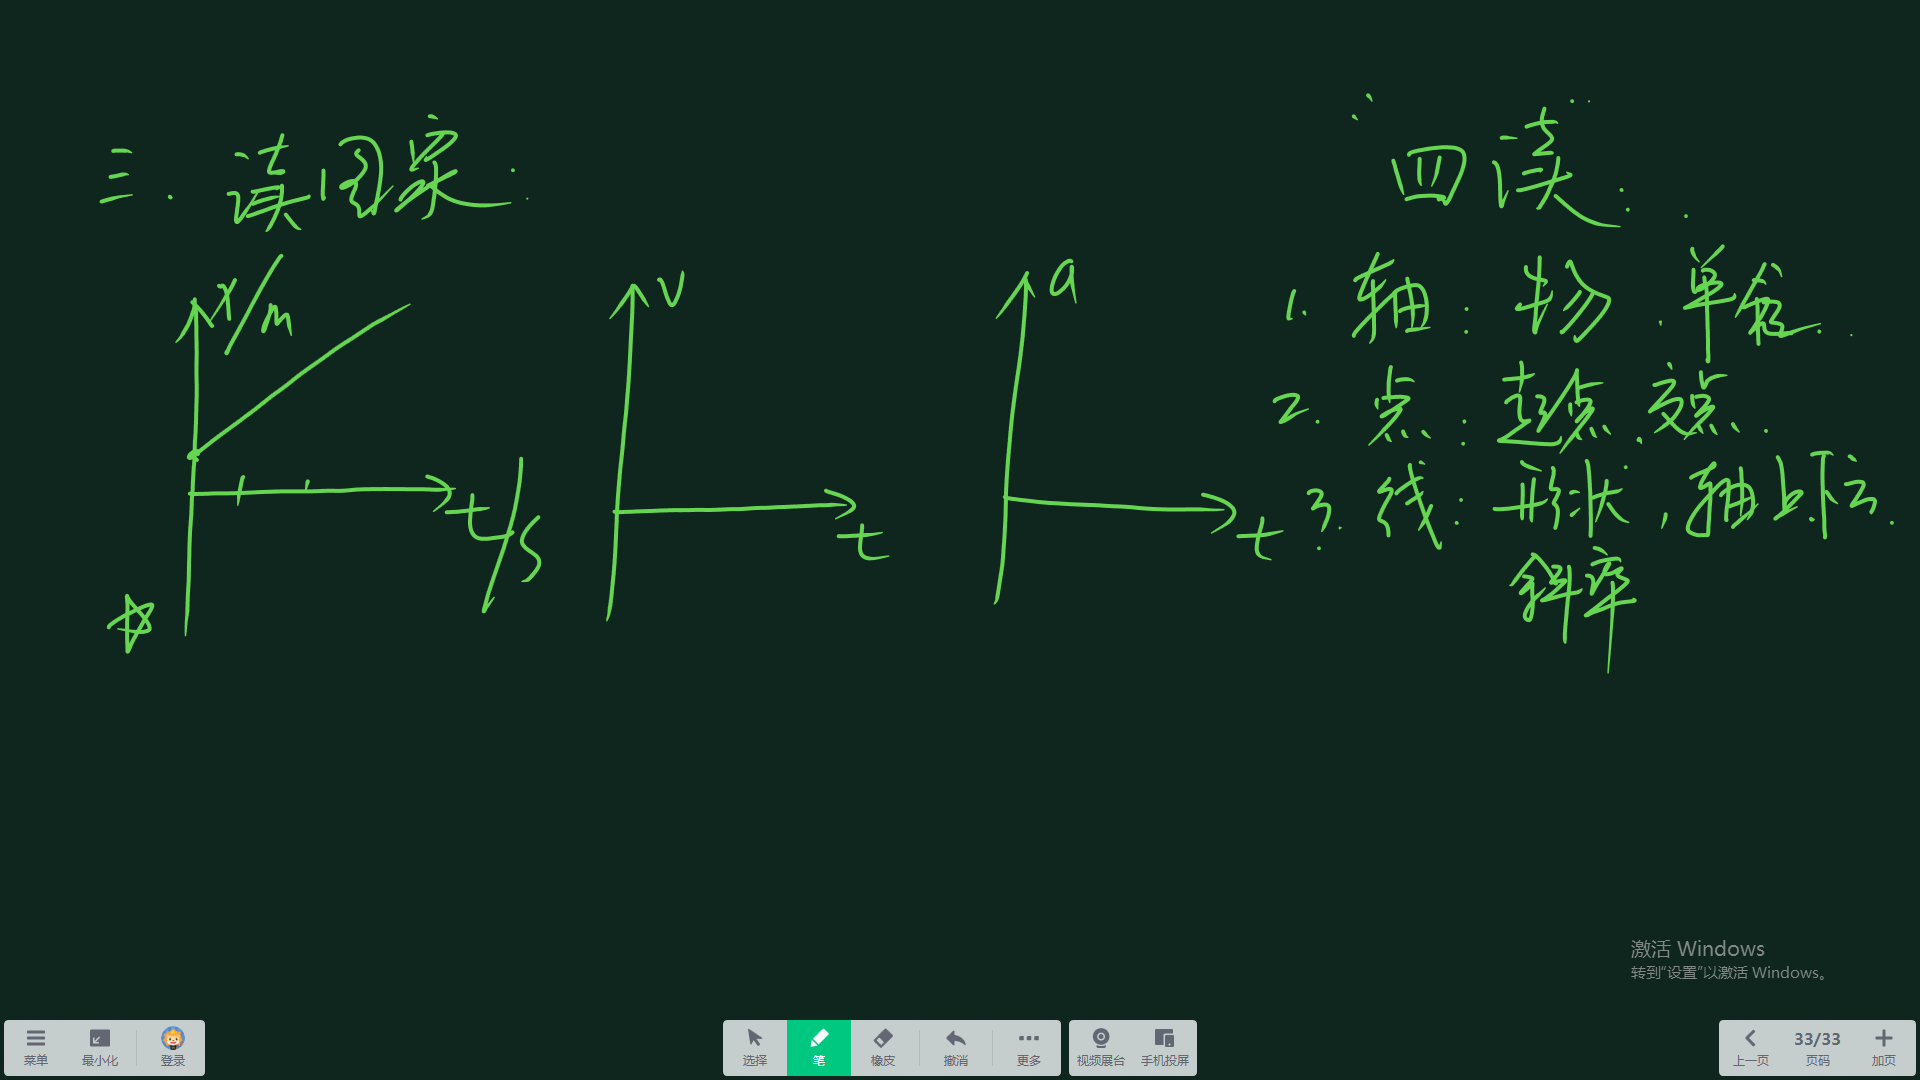 三.读图象:
x/m
t/s
v
t
a
t
四读:
1.轴:物.单位.
2.点:起点.交点.
3.线:形状,轴上下方.
斜率
激活 Windows
转到“设置”以激活 Windows。
菜单 最小化 登录 选择 笔 橡皮 撤消 更多 视频展台 手机投屏 上一页 33/33 页码 加页